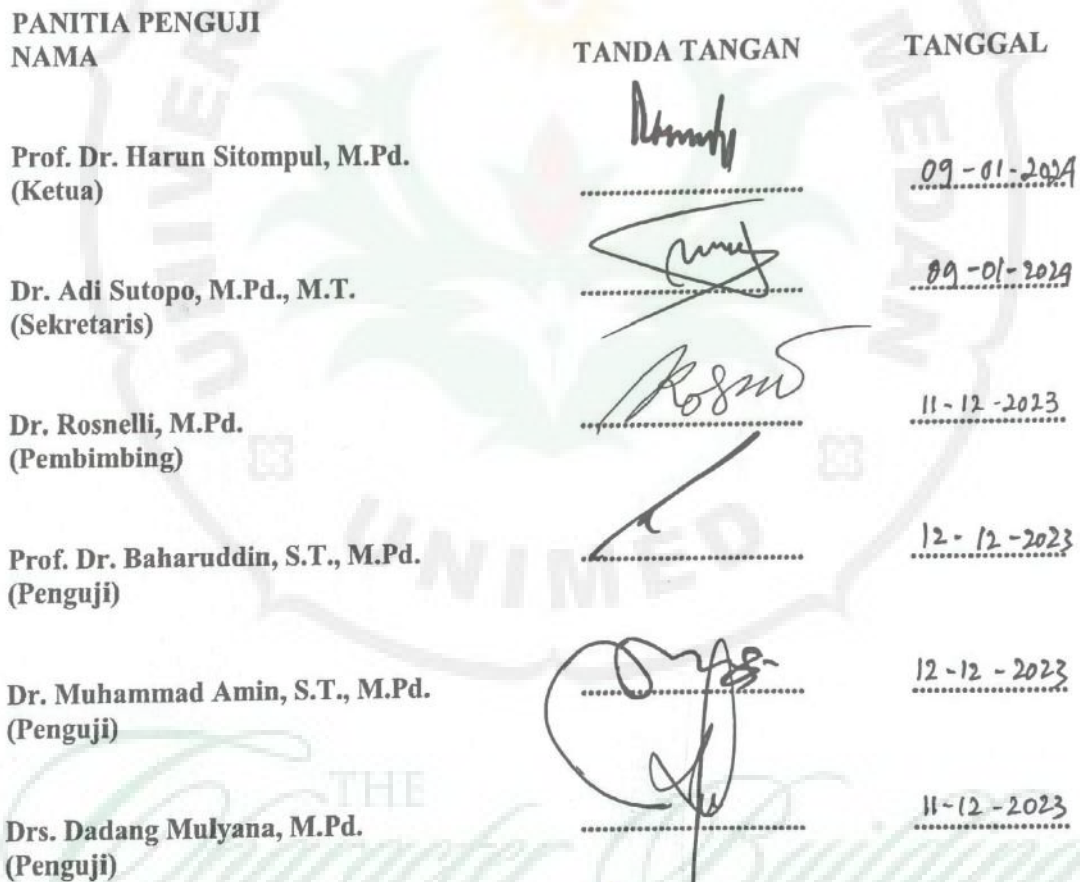 PANITIA PENGUJI
NAMA TANDA TANGAN TANGGAL
Prof. Dr. Harun Sitompul, M.Pd.
(Ketua) 09-01-2024
Dr. Adi Sutopo, M.Pd., M.T.
(Sekretaris) 09-01-2024
Dr. Rosnelli, M.Pd.
(Pembimbing) 11-12-2023
Prof. Dr. Baharuddin, S.T., M.Pd.
(Penguji) 12-12-2023
Dr. Muhammad Amin, S.T., M.Pd.
(Penguji) 12-12-2023
Drs. Dadang Mulyana, M.Pd.
(Penguji) 11-12-2023
UNIMED
THE